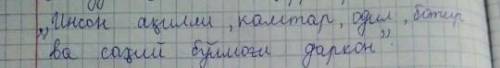 „Инсон ақилли, камтар, одил, ботир
ва сахий бўлмоғи даркор”